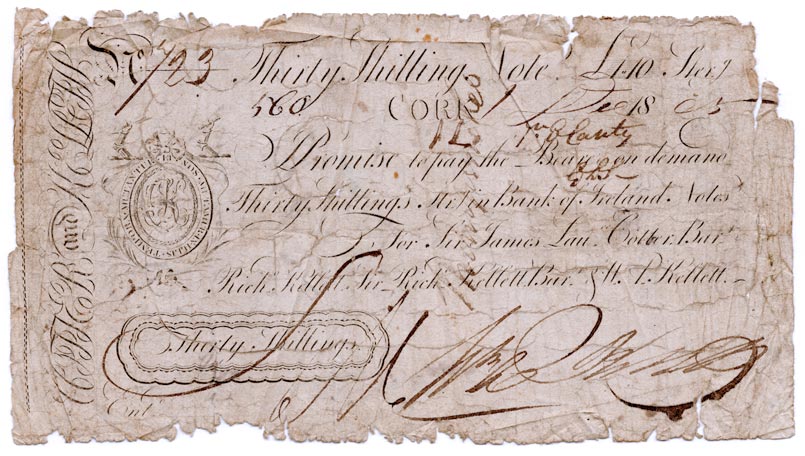 No 723 Thirty Shilling Note £1.10 Ster.g
560 CORK 1 Dec 1805
I Promise to pay the Bearer on demand
Thirty Shillings Str. in Bank of Ireland Notes
For Sir James Lau.e Cotter Bar.t
Rich.d Kellett Sir Rich.d Kellett Bar.t & W. A. Kellett
Thirty Shillings
Ent.d
COTTER and KELLETT